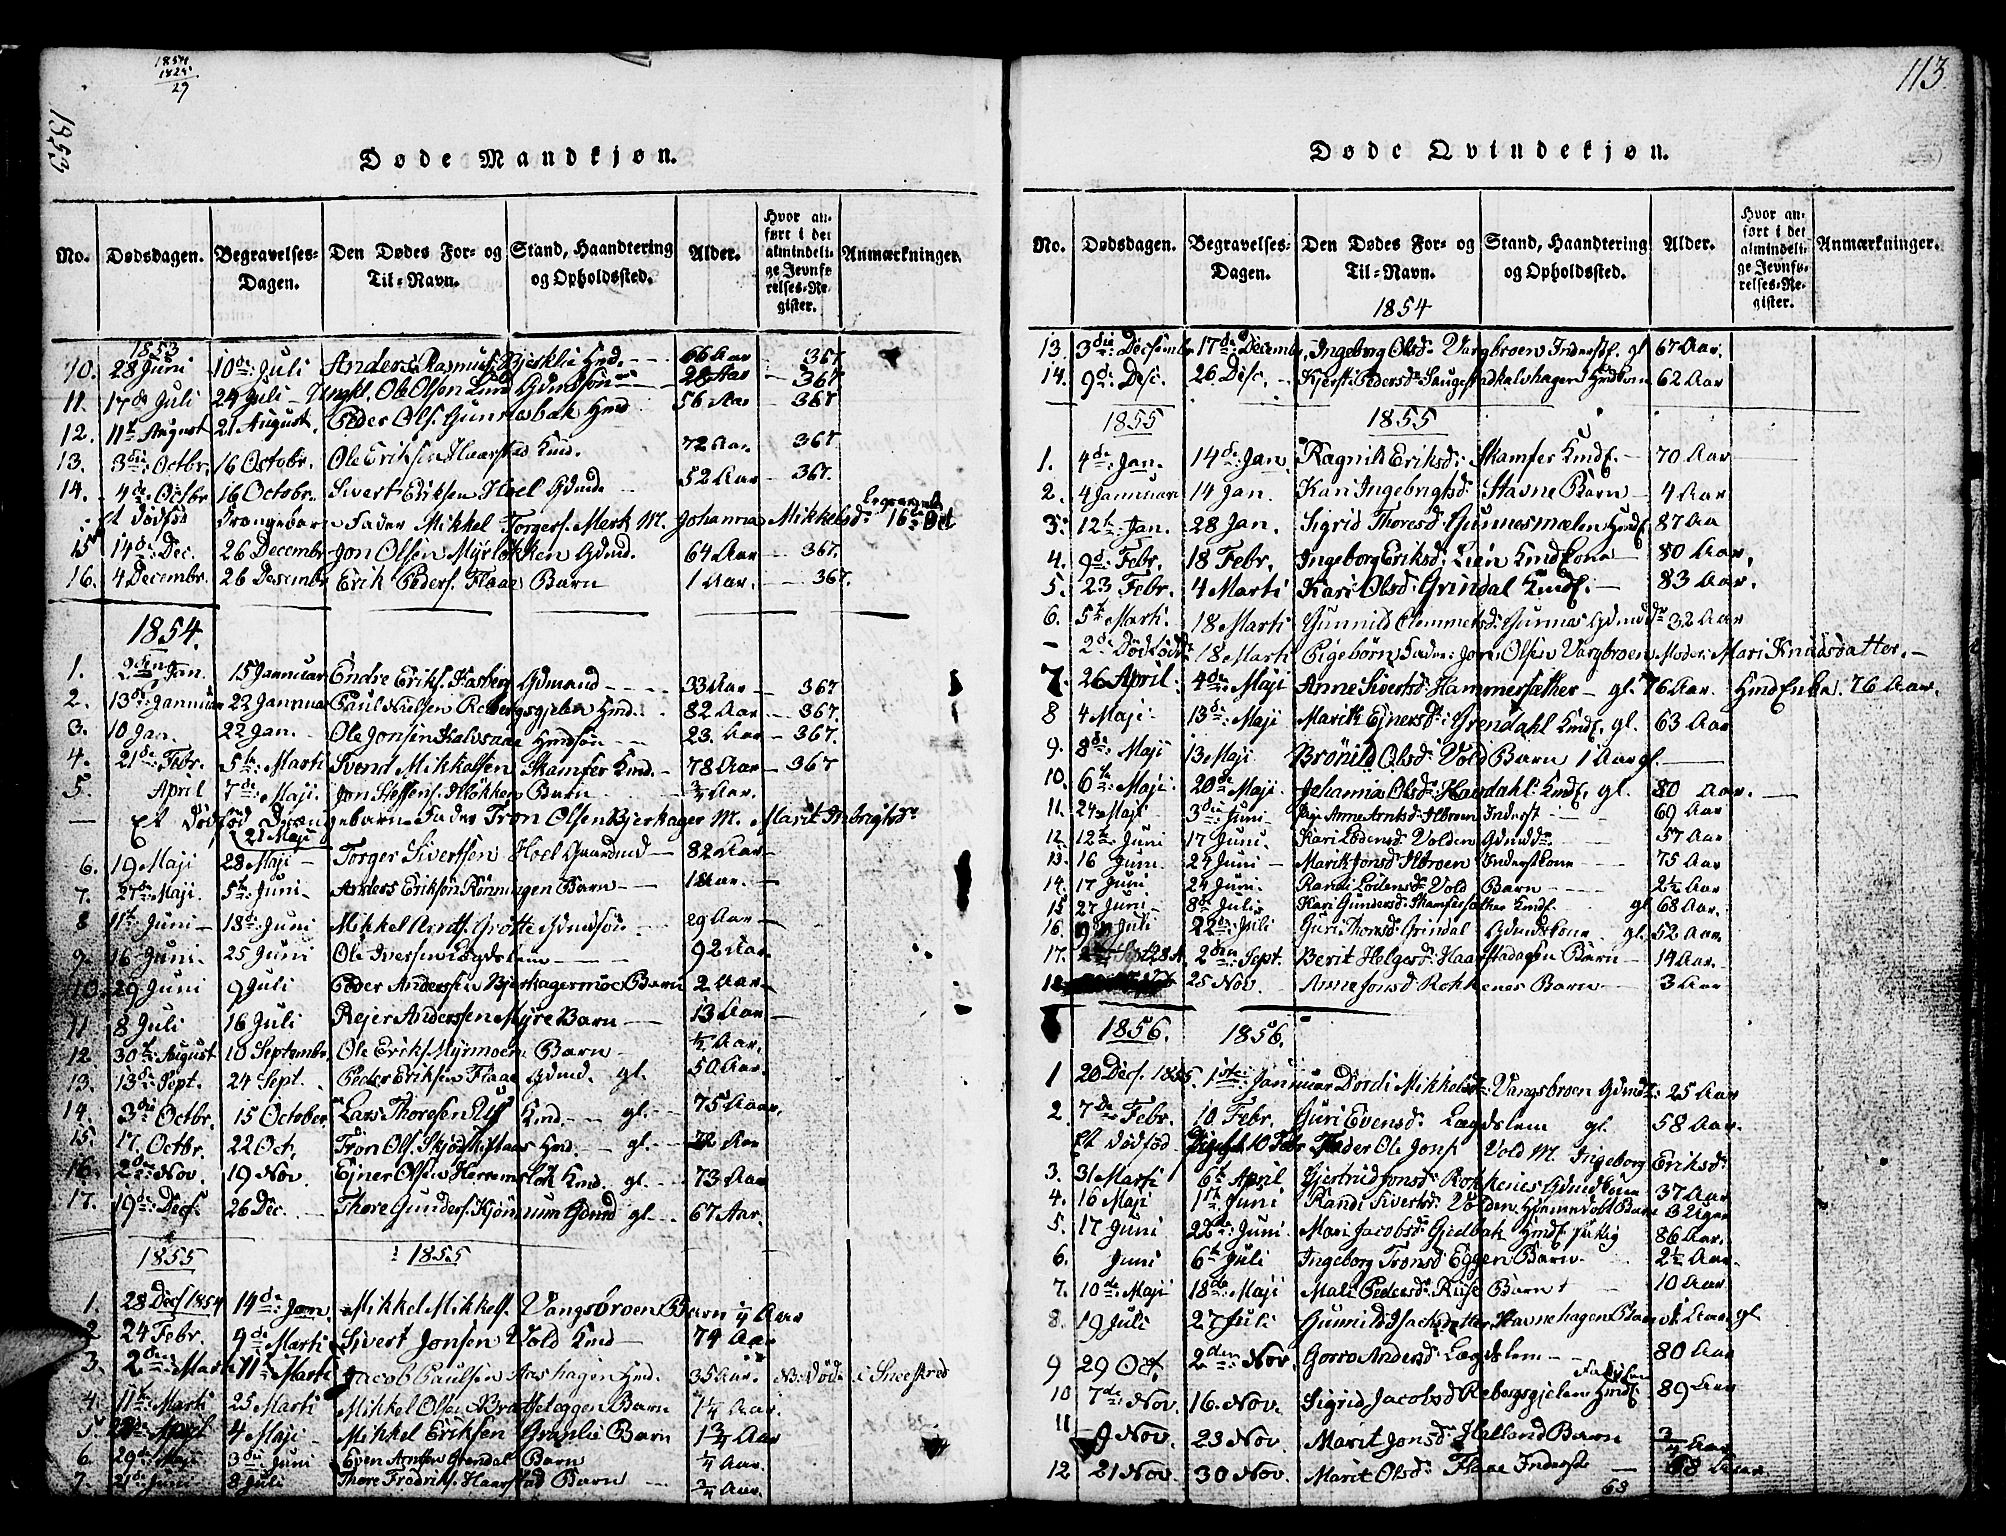 1854
1825
29
1853
Døde Mandkjøn.
No. Dødsdagen. Begravelses-Dagen. Den Dødes For- og Til-Navn. Stand, Haandtering og Opholdssted. Alder. Hvor anført i det almindelige Jevnførelses-Register. Anmærkninger.
1853
10. 28 Juni 10de Juli Anders Rasmus. Bjerklie Hmd. 66 Aar 367
11. 17de Juli 24 Juli Ungkl. Ole Olsen Lund Gdmdssøn 28 Aar 367
12. 11te August 21 August. Peder Ols. Gunnesbak Hmd 56 Aar 367
13. 3die Octbr. 16 Octobr. Ole Eriksen Haarstad Kmd. 72 Aar. 367
14. 4de Octbr 16 Octobr. Sivert Eriksen Hoel Gdmd. 52 Aar 367.
et dødfød Drengebarn Fader Mikkel Torgers. Merk M. Johanna Mikkelsdr. begravede 16de Oct
15 14de Dec. 26 Decembr Jon Olsen Myrløkken Gdmd. 64 Aar 367.
16. 4 Decembr. 26 Desembr Erik Peders. Flaae Barn 1 Aar. 367.
1854.
1. Jan. 15 Januar Endre Eriks. Aasberg Gdmand 33 Aar 367
2. 13de Januar 22 Januar Paul Nielsen Rebergsgjelen Hmd. 82 Aar 367.
3. 10 Jan. 22 Jan. Ole Jonsen Kalvsaae Hmdsøn 23. Aar 367.
4. 21de Febr. 5te Marti Svend Mikkelsen Skamfer Kmd. 78 Aar 367
5. April 7de Maji. Jon Steffens. Kløkken Barn ¾ Aar.
— Et Dødfød Drængebarn Fader Tron Olsen Bjerkager M. Marit Inbrigtsdr.
21 Maji
6. 19 Maji 28 Maji Torger Sivertsen Hoel Gaardmd 82 Aar
7. 27de Maji. 5te Juni Anders Eriksøn Rønningen Barn 1 Aar.
8 11te Juni 18de Juni Mikkel Arnts. Grøtte Gdmdsøn 29 Aar
9. 16 Juni. 25 Juni Ole Iversen Lægdslem 92 Aar.
10. 29 Juni 9 Juli Peder Andersen Bjerkagermoe Barn 2 Aar.
11. 8 Juli 16 Juli Rejer Andersen Myre Barn 13 Aar
12 30te August 10 Septembr. Ole Eriks. Myrmoen Barn ½ Aar.
13. 13de Sept. 24 Sept. Peder Eriksen Flaae Gdmd. gl. 50 Aar.
14. 3die Octbr. 15 October. Lars Thoresen Uf Kmd. gl. 75 Aar.
15. 17. Octbr. 22 Oct. Tron Ols. Hmd. gl. 72 Aar
16. 2den Nov. 19 Nov. Ejner Olsen Herremsløk Kmd. gl. 73 Aar
17. 19de Decf. 26 Dec. Thore Gunders. Kjønnum Gdmd gl. 67 Aar.
1855 1855
1. 28 Decf 1854 14de Jan. Mikkel Mikkels. Vangsbroen Barn ¼ Aar
2 24 Febr. 4de Marti Sivert Jonsen Vold Kmd 74 Aar
3. 2den Marti 11te Marti Jacob Paulsen Aashagen Hmd. 35 Aar. NB: Død i Sneeskred
4. 11te Marti 25 Marti Mikkel Olsen Bratteleggen Barn 1¼ Aar
5 April 4 Maji Mikkel Eriksen Granlie Barn 1¾ Aar
6. 29de Maji 3die Juni Even Arntsen Grendal Barn ¼ Aar.
7. 21de Juni 8 Juli Thore Fredriks. Haarstad Barn ¾ Aar.
113.
Døde Qvindekjøn.
No. Dødsdagen. Begravelses-Dagen. Den Dødes For- og Til-Navn. Stand, Haandtering og Opholdssted. Alder. Hvor anført i det almindelige Jevnførelses-Register. Anmærkninger.
1854
13. 3die Decembr 17de Decembr. Ingeborg Olsdr. Vangbroen Inderst. gl 67 Aar.
14. 9de Desc. 26 Disc. Kjersti Pedersdr. Hmdkone 62 Aar
1855 1855
1. 4de Jan. 14de Jan Ragnild Eriksdr. Skamfer Kmdf. 70 Aar
2. 4 Januari 14 Jan. Kari Ingebrigtsdr. Stavne Barn 4 Aar
3. 12te Jan. 28 Jan. Sigrid Thoresdr. Gunnesmælen Hmdf 87 Aar
4. 9de Febr. 18 Febr. Ingeborg Eriksdr. Lien Kmdkone 80 Aar.
5. 23 Febr. 4 Marti Kari Olsdr. Grindal Kmdf. 83 Aar.
6. 5te Marti. 18 Marti Gunnild Clemmetsdr. Gunnes Gdmdsdr 32 Aar
— 2de Dødfødte 18 Marti Pigebørn Fader Jon Olsen Vangbroen Moder: Mari Knudsdatter.
7. 26 April. 4de Maji Anne Sivertsdr. Hammersæther gl. 76 Aar. Hmd Enke. 76 Aar.
8 4 Maji 13de Maji Marit Ejnersdr. Grendahl Kmdf. gl. 63 Aar
9. 8de Maji 13 Maji Brønild Olsdr. Vold Barn 1 Aar gl.
10. 6te Maji 20de Maji Johanna Olsdr. Havdahl Kmdf. gl. 80 Aar.
11. 24 Maji 3die Juni Anne Arntsdr. Ilbroen Inderst 69 Aar
12. 12te Juni 17 Juni. Kari Lodensdr. Volden Gdmdsdr. 57 Aar
13. 16 Juni 24 Juni Marit Jonsdr. Ilbroen Inderstkone 75 Aar
14. 17 Juni 24 Juni. Randi Lodensdr. Vold Barn 2½ Aar
15 27 Juni 8de Juli Kari Gundersdr. Skamfersæther Kmdf. gl 68 Aar.
16. 9de Juli 22de Juli Guri Thorsdr. Grindal Gdmdskone gl. 52 Aar.
17. 2den Sept. Berit Helgesdr. Haarstadagen Barn 14 Aar
18 25 Nov. Anne Jonsdr. Rokkenes Barn 3 Aar
1856. 1856.
1 20 Decf. 1855. 1ste Januar Dordi Mikkelsdr. Vangsbroen Gdmdsdr. 25 Aar
2. 7de Febr. 10. Febr. Guri Evensdr. Lægdslem gl. 58 Aar.
Et Dødfød Pigebarn 10 Febr Fader Ole Jons. Vold M. Ingeborg Eriksdr.
3. 31 Marti 6te April Gjertrid Jonsdr. Rokkenes Gdmdkone 37 Aar
4. 16 Maji 1ste Juni Randi Sivertsdr. Volden, Barn 3 Uger
5. 17 Juni 22de Juni. Mari Jacobsdr. Gjedbak Hmdf. Fattig 86 Aar.
6. Juni 6te Juli Ingeborg Tronsdr. Eggen Barn 2½ Aar
7. 10de Maji 18de Maji Mali Pedersdr. Ruse Barn 10 Aar
8. 19 Juli 27 Juli Gunnild Isachsdatter Havnehagen Barn gl.
9 29 Oct. 2den Nov. Gorro Andersdr. Lægdslem 80 Aar
10 7de Nov. 16. Nov. Sigrid Jacobsdr. Rebergsgjelen Hmdf. 89 Aar
11 9 Nov. 23 Nov. Marit Jonsdr. Halland Barn ¾ Aar
12 21 Nov. 30 Nov. Marit Olsdr. Flaae Inderst 68 Aar
63